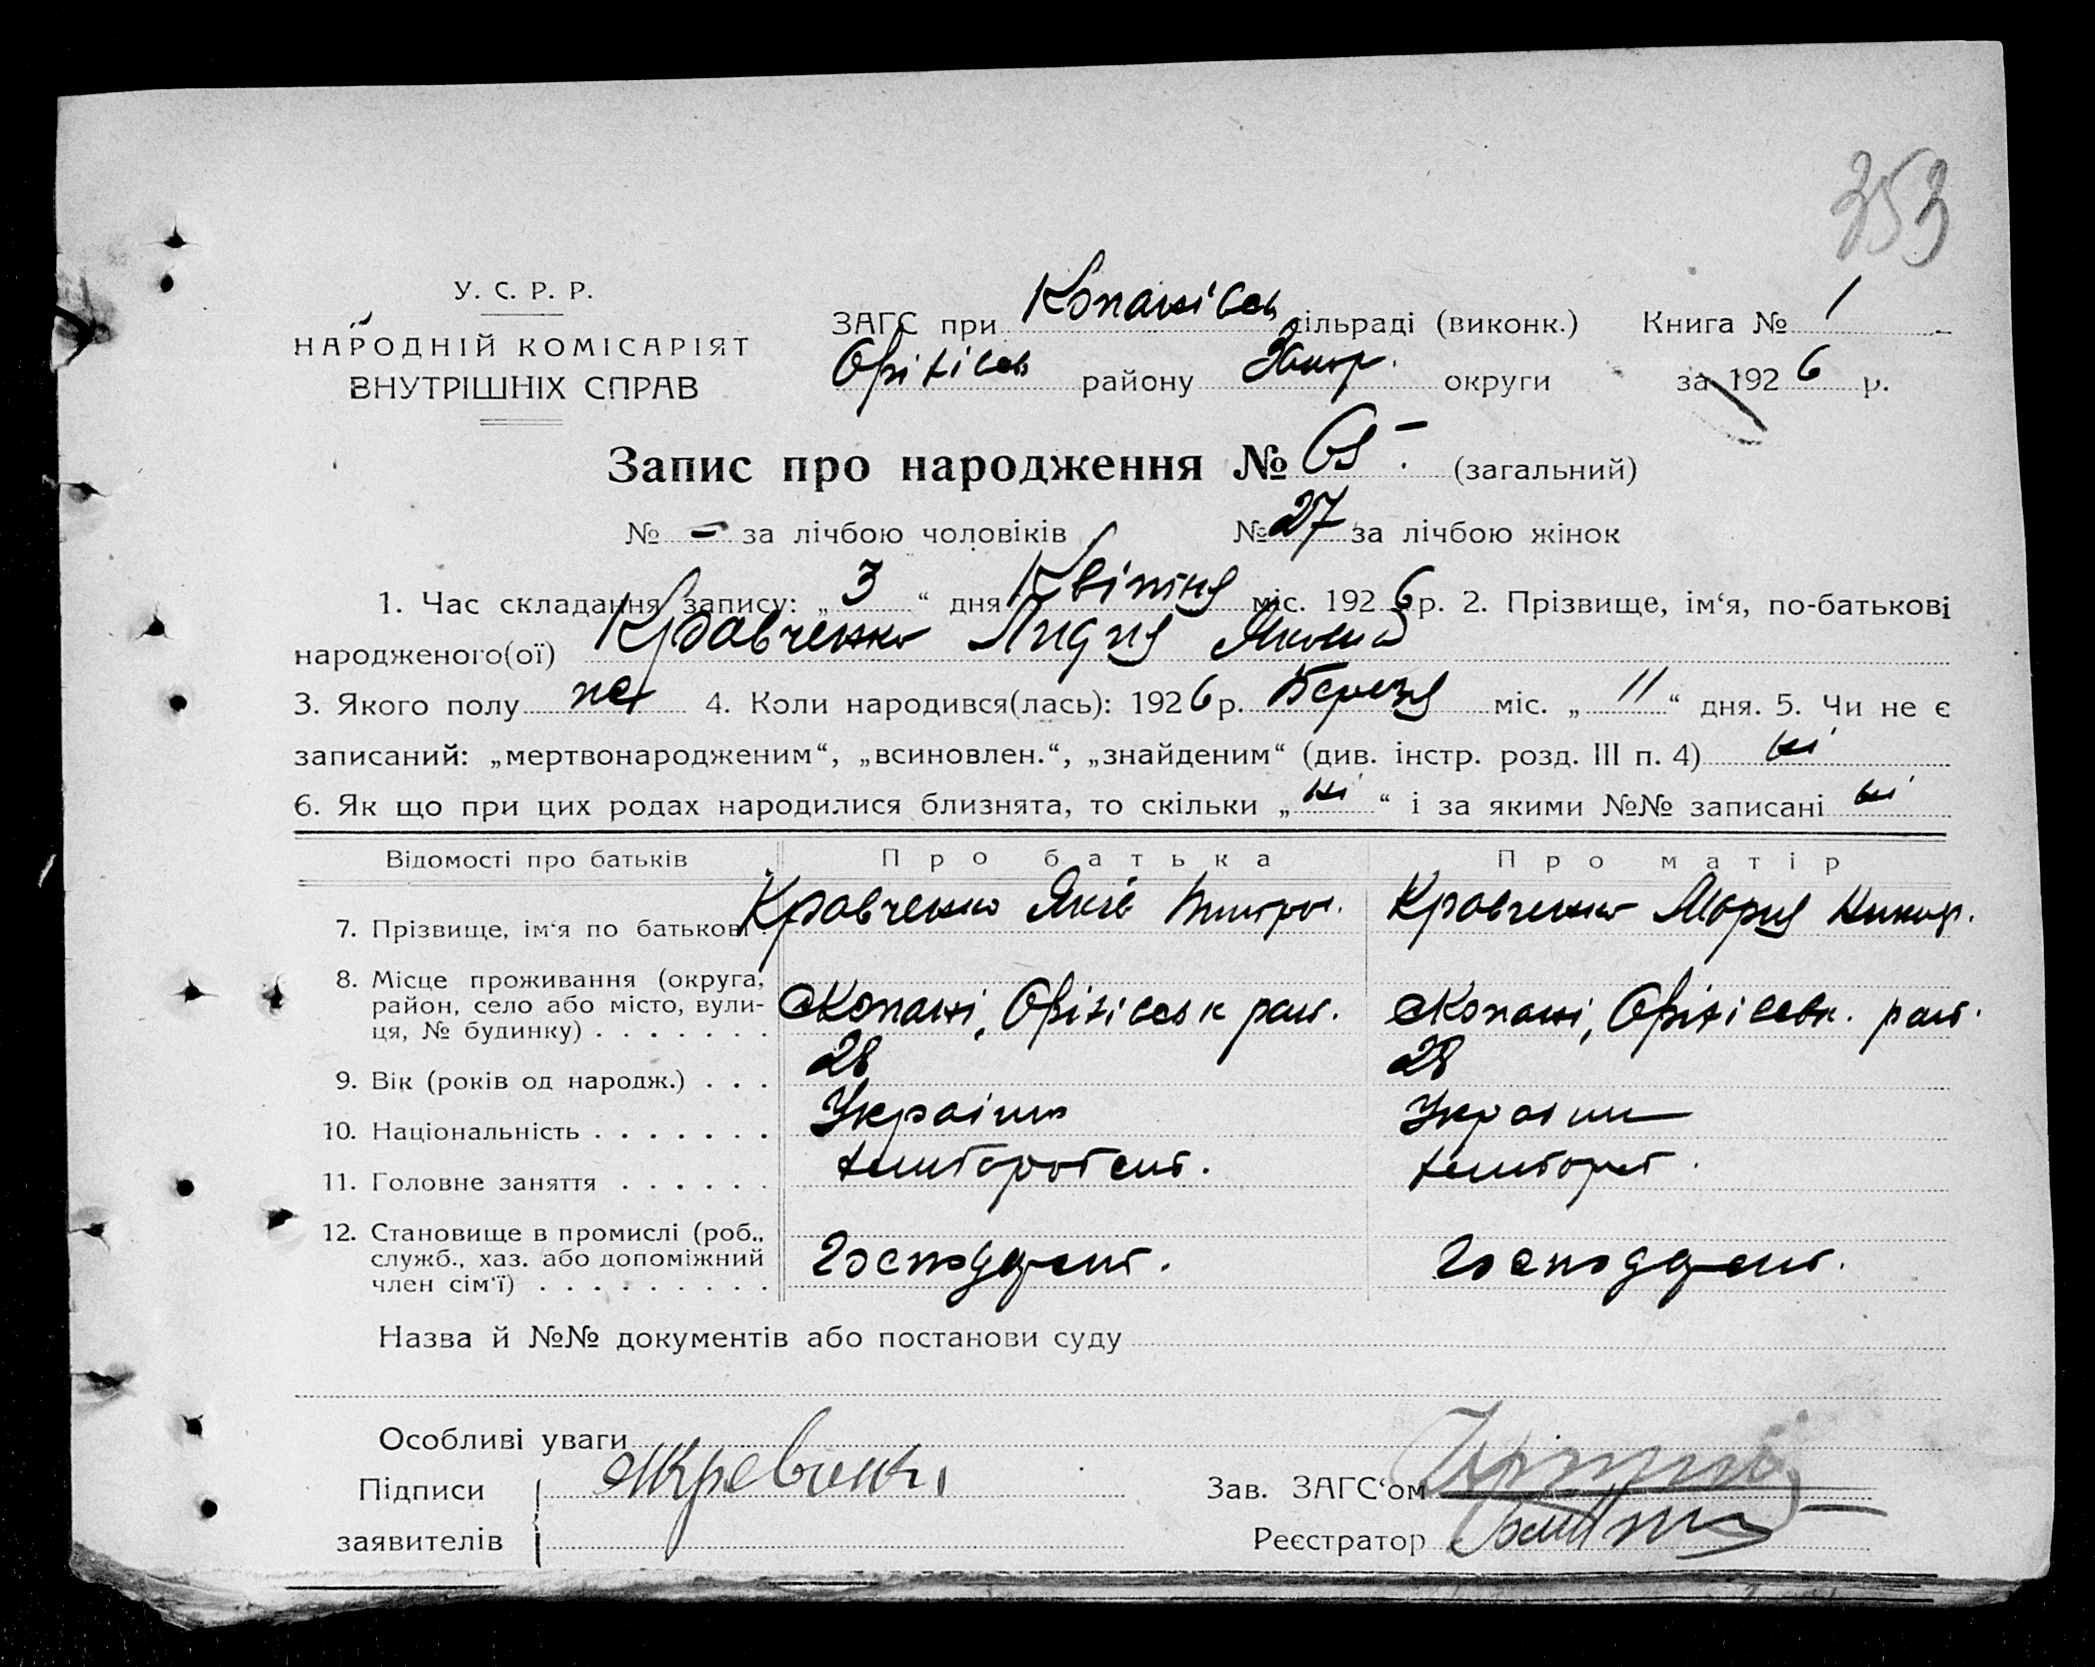 353
У. С. Р. Р.
НАРОДНІЙ КОМІСАРІЯТ
ВНУТРІШНІХ СПРАВ
ЗАГС при Копанівск сільраді (виконк.) Книга № 1
Оріхівськ району Запор. округи за 1926 р.
Запис про народження № 65. (загальний)
№ – за лічбою чоловіків № 27 за лічбою жінок
1. Час складання запису: „3“ дня Квітня міс. 1926 р. 2. Прізвище, ім‘я, по-батькові
народженого(ої) Кравченко Лидия Якова
3. Якого полу 4. Коли народився(лась): 1926 р. Березня міс. „11“ дня. 5. Чи не є
записаний: „мертвонародженим“, „всиновлен.“, „знайденим“ (див. інстр. розд. III п. 4) ні
6. Як що при цих родах народилися близнята, то скільки „ні“ і за якими №№ записані ні
Відомості про батьків Про батька Про матір
7. Прізвище, ім‘я по батькові . Кравченко Яків Дмитров. Кравченко Мария
8. Місце проживання (округа,
район, село або місто, вули-
ця, № будинку) . . . . . . . с Копані, Оріхівськ рай. с Копані, Оріхівськ. рай.
9. Вік (років од народж.) . . . 28 28
10. Національність . . . . . . . Україн Україн
11. Головне заняття . . . . . . хлібороб
12. Становище в промислі (роб.,
служб., хаз. або допоміжний
член сім‘ї) . . . . . . . . . Господар Господар
Назва й №№ документів або постанови суду
Особливі уваги
Підписи
заявителів
Зав. ЗАГС‘ом
Реєстратор